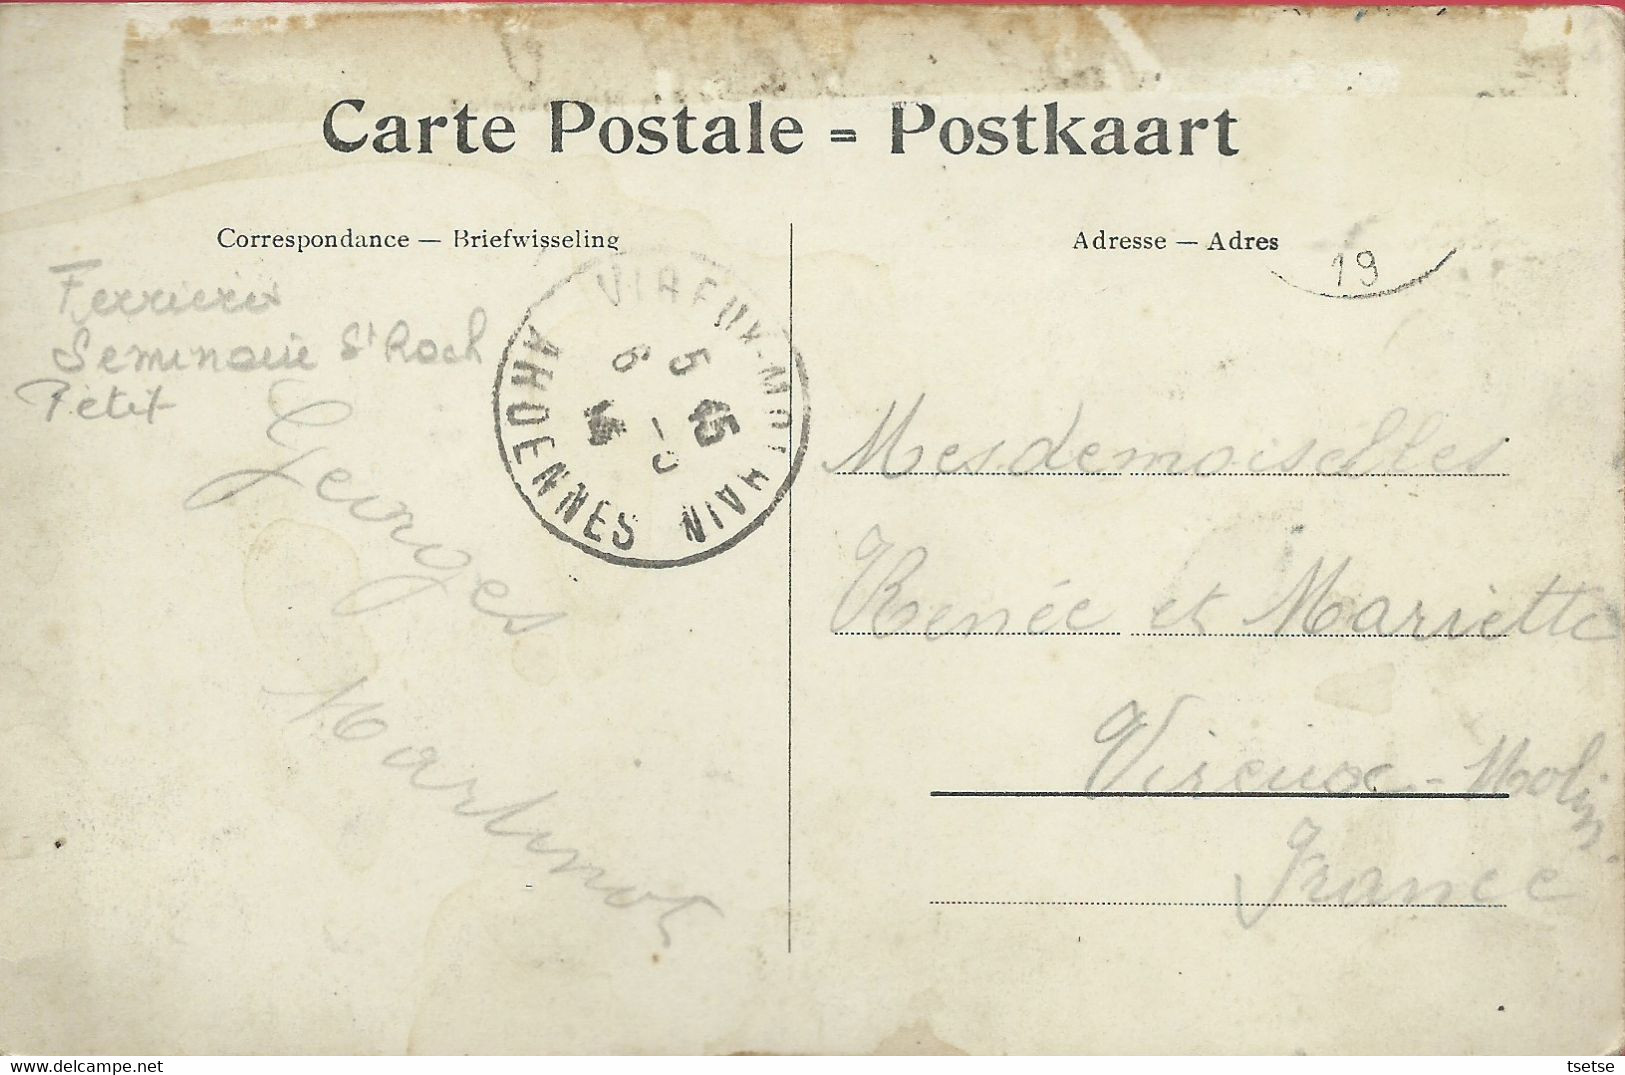 Carte Postale = Postkaart
Correspondance — Briefwisseling
Adresse — Adres
19
Ferrières
Seminaire St Roch
Petit
Georges
Martinot
VIREUX-MOLHAIN
ARDENNES
5 45
6 -5
Mesdemoiselles
Renée et Mariette
Vireux-Molin.
France
tsetse